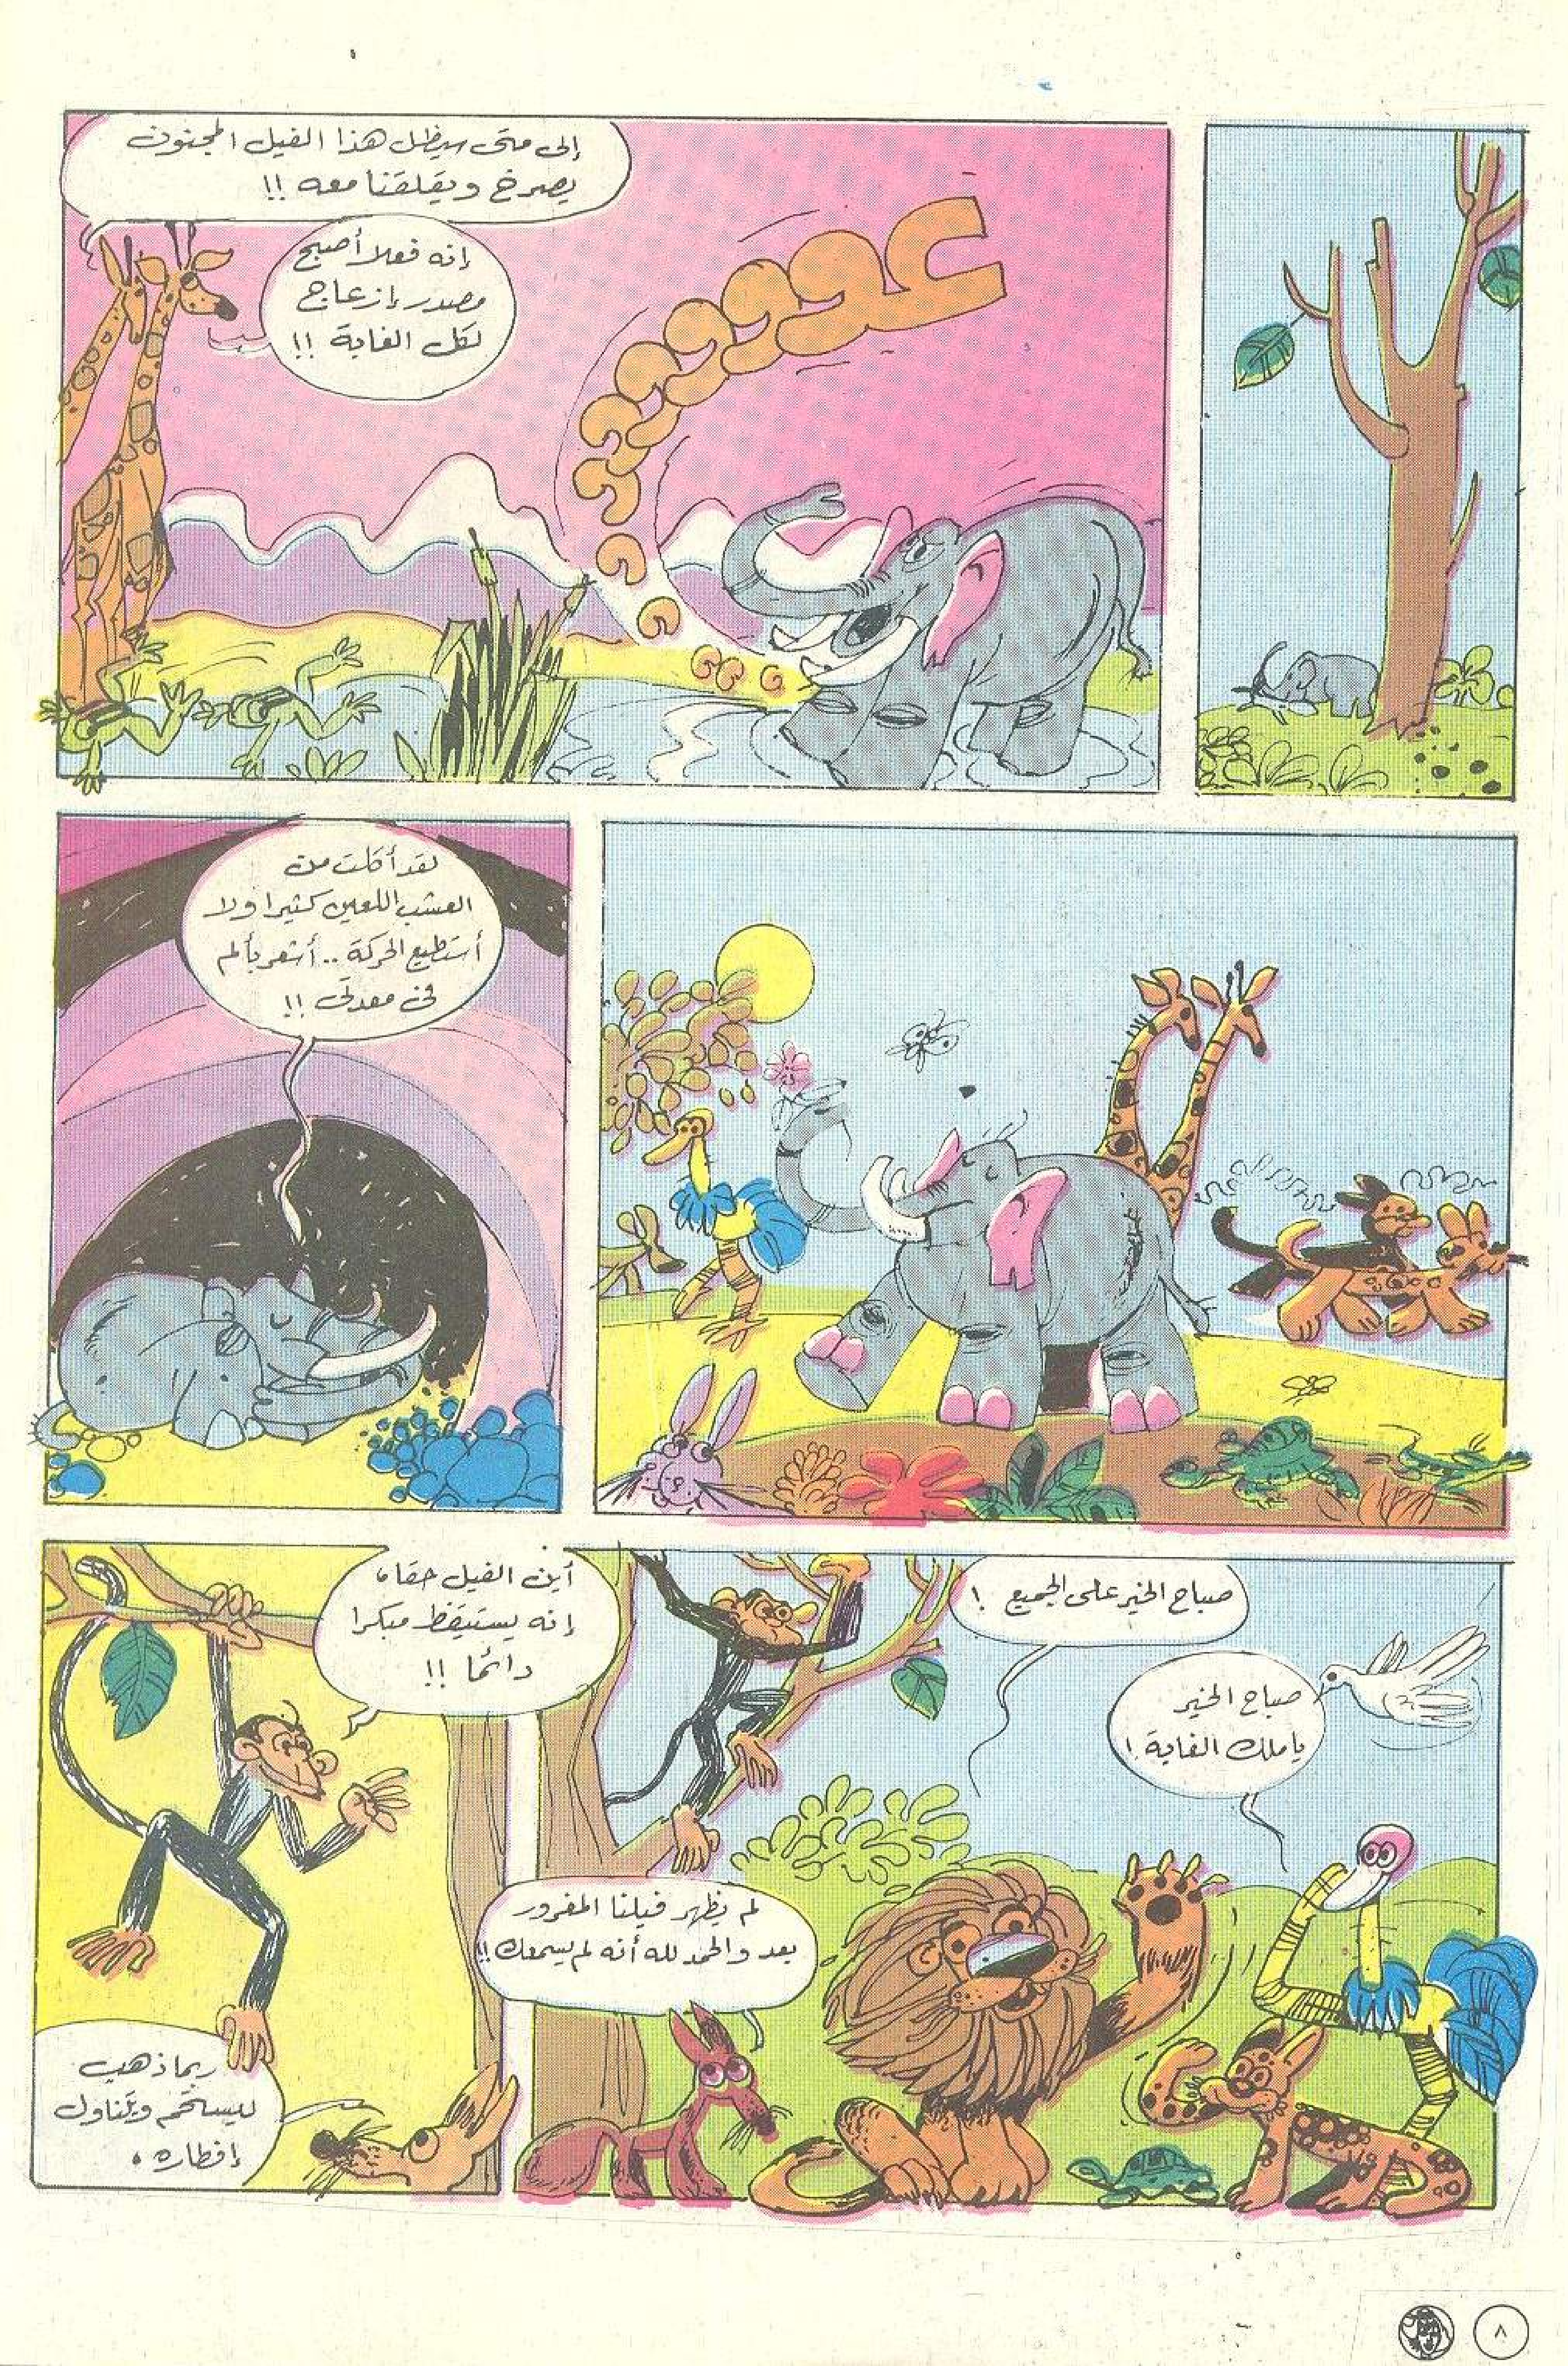 إلى متى سيظل هذا الفيل المجنون
يصرخ ويقلقنا معه !!
إنه فعلا أصبح
مصدر إزعاج
لكل الغابة !!
عوووووووووووو
لقد أكلت من
العشب اللعين كثيرا ولا
أستطيع الحركة .. أشعر بألم
فى معدتى !!
صباح الخير على الجميع !
صباح الخير
يا ملك الغابة !
لم يظهر فيلنا المغرور
بعد والحمد لله أنه لم يسمعك !!
أين الفيل حقا،
إنه يستيقظ مبكرا
دائما !!
ربما ذهب
ليستحم ويتناول
إفطاره .
٨